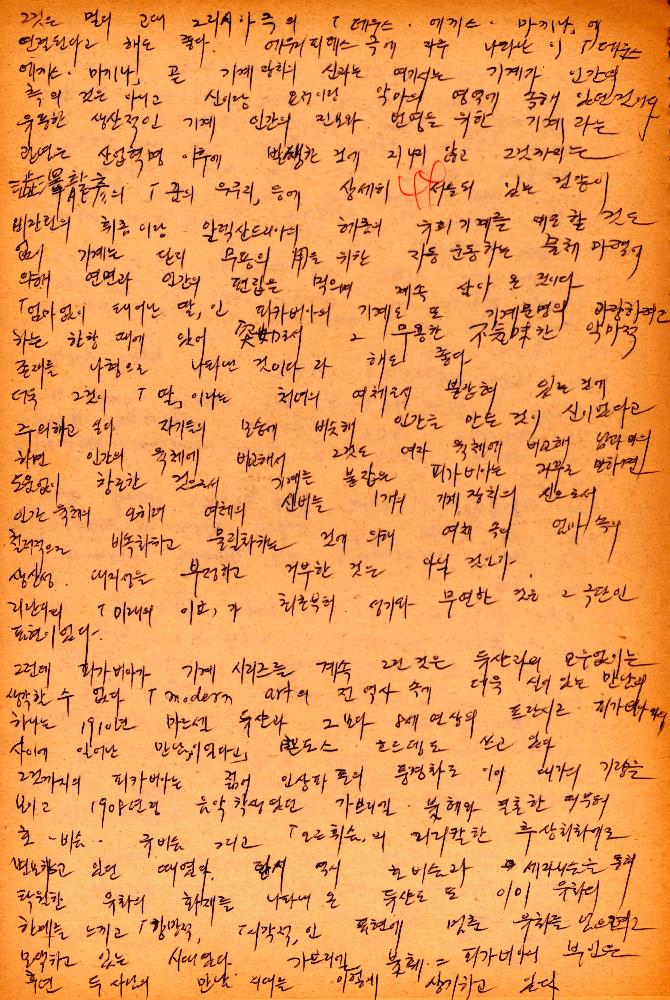 그것은 멀리 고대 그리샤아 극의 「데우스·에끼스·마끼나」에
연결된다고 해도 좋다. 에우리피데스 극에 자주 나타나는 이 「데우스
에끼스·마끼나」 곧 기계장치의 신과는 여기서는 기계가 인간의
측의 것은 아니고 신이랑 요정이랑 악마의 영역에 속해 있던 것이다
유용한 생산적인 기계 인간의 진보와 번영을 위한 기계 라는
관념은 산업혁명 이후에 발생한 것에 지나지 않고 그것까지는
의 「꿈의 우주」 등에 상세히 서술되 있는 것 같이
비잔틴의 희롱이랑 알렉산드리아의 헤론의 유희기계를 예로 할 것도
없이 기계는 단지 무용의 用을 위한 자동 운동하는 물체 마력에
의해 연면과 인간의 편집을 먹으며 계속 살아 온 것이다
「엄마없이 태어난 딸」인 피카비아의 기계도 또 기계문명의 바랑하려고
하는 한창 때에 있어 突如로서 그 무용한 不気味한 악마적
존재를 나형으로 나타낸 것이다 라 해도 좋다
더욱 그것이 「딸」이라는 처녀의 여체로서 불감하 있는 것에
주의하고 싶다 자기들의 모습에 비슷해 인간을 만든 것이 신이었다고
하면 인간의 육체에 비교해서 그것도 여자 육체에 비교해 남자의
도움없이 창조한 것으로서 기계는 불감은 피카비아는 거꾸로 말하면
인간 육체의 오히려 여체의 신비를 1개의 기계 장치의 신으로서
철저적으로 비속화하고 물질화하는 것에 의해 여체 속의 엄마 속의
생산성·대지성을 부정하고 거부한 것은 아닐 것인가
리란다의 「미래의 이브」가 최초부터 성기와 무연한 것은 그 극단인
표현이었다.
그런데 피카비아가 기계 시리즈를 계속 그린 것은 듀샨과의 교우없이는
생각할 수 없다 「modern art의 전 역사 속에 더욱 심이 있는 만남의
하나는 1910년 마르셀 듀샨과 그보다 8세 연상의 프란시스 피카비아와의
사이에 일어난 만남이었다」고 로스 흐드에도 쓰고 있다
그것까지의 피카비아는 젊어 인상파 풍의 풍경화로 이미 대가의 기량을
보이고 1908년경 음악학생이었던 가브리엘·붓훼와 결혼한 때부터
포·비슴·큐비슴 그리고 「오르휘슴」의 리리칼한 추상회화에로
변모하고 있던 때였다. 한편 역시 포비슴과 세잔니슴을 통해
탁월한 유화의 화재를 나타내 온 듀샨도 또 이미 유화의
한계를 느끼고 「망막적」「시각적」인 표현에 멈춘 유화를 넘으려고
모색하고 있는 시대였다. 가브리엘 붓훼 = 피카비아의 부인은
후년 두 사람의 만난 시대를 이렇게 상기하고 있다